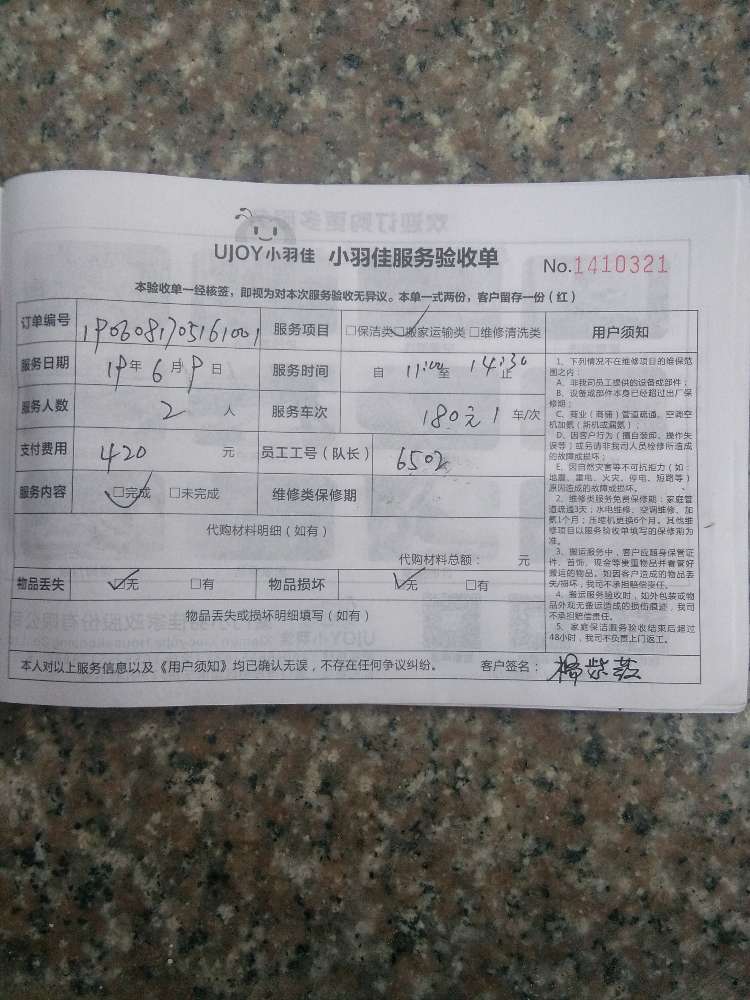 UJOY小羽佳 小羽佳服务验收单 No.1410321
本验收单一经核签，即视为对本次服务验收无异议。本单一式两份，客户留存一份（红）
订单编号 1906081705161001 服务项目 □保洁类□搬家运输类□维修清洗类 用户须知
服务日期 19年6月9日 服务时间 自 11:00 至 14:30 止
服务人数 2 人 服务车次 180元 1 车/次
支付费用 420 元 员工工号（队长） 6502
服务内容 □完成 □未完成 维修类保修期
代购材料明细（如有）
代购材料总额： 元
物品丢失 □无 □有 物品损坏 □无 □有
物品丢失或损坏明细填写（如有）
本人对以上服务信息以及《用户须知》均已确认无误，不存在任何争议纠纷。 客户签名：
1、下列情况不在维修项目的维保范
围之内：
A、非我司员工提供的设备或部件；
B、设备或部件本身已经超过出厂保
修期；
C、商业（商铺）管道疏通、空调空
机加氨（新机或漏氨）；
D、因客户行为（擅自装卸、操作失
误等）或另请非我司人员检修所造成
的故障或损坏；
E、因自然灾害等不可抗拒力（如：
地震、雷电、火灾、停电、短路等）
原因造成的故障或损坏。
2、维修类服务免费保修期：家庭管
道疏通3天；水电维修、空调维修、加
氨1个月；压缩机更换6个月，其他维
修项目以服务验收单填写的保修期为
准。
3、搬运服务中，客户应随身保管证
件、首饰、现金等贵重物品并看管好
搬运的物品。如因客户造成的物品丢
失/损坏，我司不承担赔偿责任。
4、搬运服务验收时，如外包装或物
品外观无搬运造成的损伤痕迹，我司
不承担赔偿责任。
5、家庭保洁服务验收结束后超过
48小时，我司不负责上门返工。